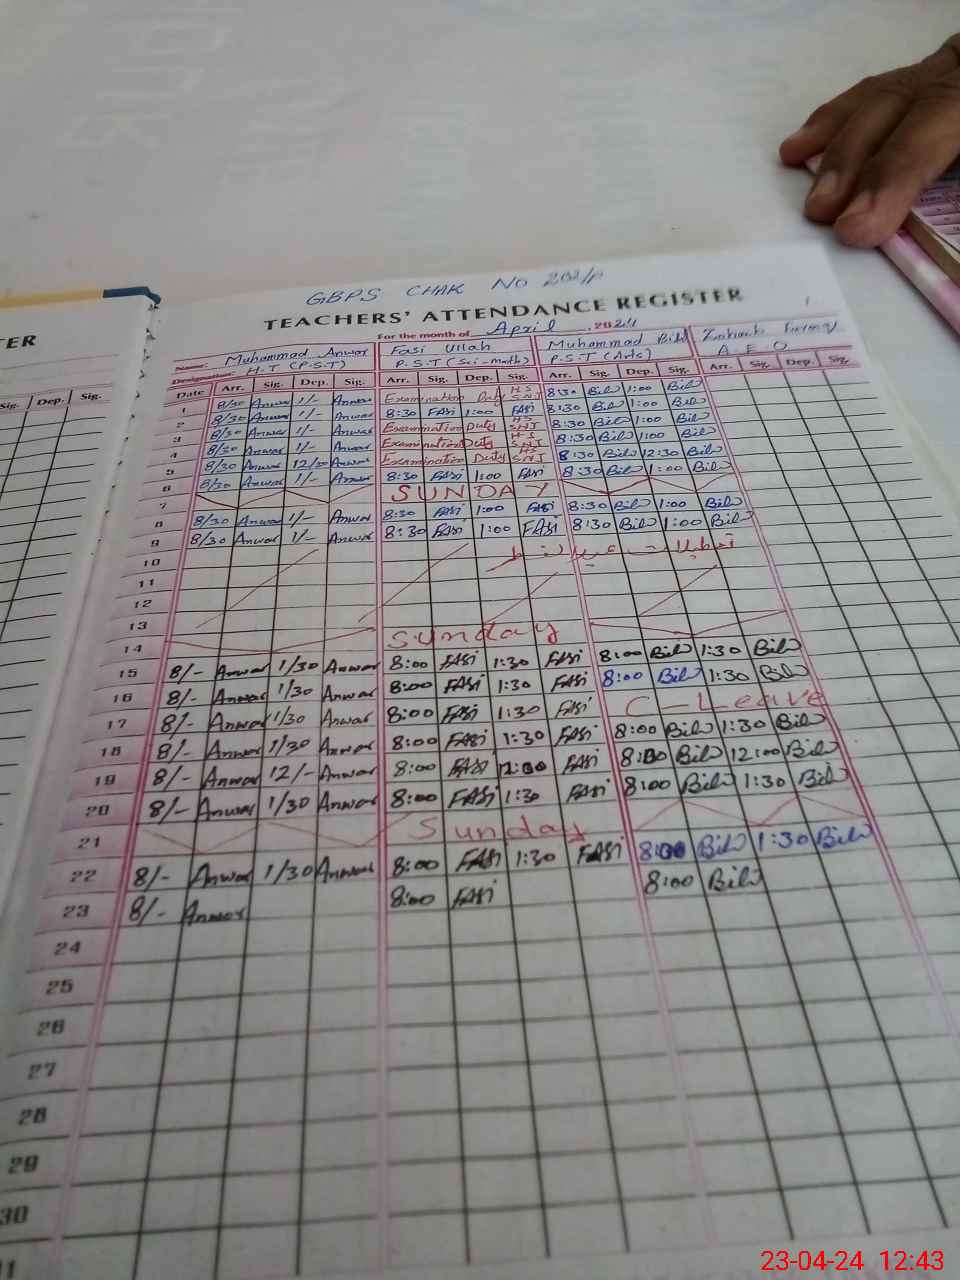 GBPS CHAK NO 202/P
TEACHERS' ATTENDANCE REGISTER
TER
For the month of April , 2024
Name: Muhammad Anwar Fasi Ullah Muhammad Bilal
Designation: H.T (P.S.T) P.S.T (Sci-math) P.S.T (Arts) A.E.O
Sig. Dep. Sig. Date Arr. Sig. Dep. Sig. Arr. Sig. Dep. Sig. Arr. Sig. Dep. Sig. Arr. Sig. Dep. Sig.
1 8/30 Anwar 1/- Anwar Examination Duty 8:30 Bilal 1:00 Bilal
2 8/30 Anwar 1/- Anwar 8:30 FASi 1:00 FASi 8:30 Bilal 1:00 Bilal
3 8/30 Anwar 1/- Anwar Examination Duty 8:30 Bilal 1:00 Bilal
4 8/30 Anwar 1/- Anwar Examination Duty 8:30 Bilal 1:00 Bilal
5 8/30 Anwar 12/30 Anwar Examination Duty 8:30 Bilal 12:30 Bilal
6 8/30 Anwar 1/- Anwar 8:30 FASi 1:00 FASi 8:30 Bilal 1:00 Bilal
7 SUNDAY
8 8/30 Anwar 1/- Anwar 8:30 FASi 1:00 FASi 8:30 Bilal 1:00 Bilal
9 8/30 Anwar 1/- Anwar 8:30 FASi 1:00 FASi 8:30 Bilal 1:00 Bilal
10 تعطیلات عید الفطر
11
12
13
14 Sunday
15 8/- Anwar 1/30 Anwar 8:00 FASi 1:30 FASi 8:00 Bilal 1:30 Bilal
16 8/- Anwar 1/30 Anwar 8:00 FASi 1:30 FASi 8:00 Bilal 1:30 Bilal
17 8/- Anwar 1/30 Anwar 8:00 FASi 1:30 FASi C-Leave
18 8/- Anwar 1/30 Anwar 8:00 FASi 1:30 FASi 8:00 Bilal 1:30 Bilal
19 8/- Anwar 12/- Anwar 8:00 FASi 12:00 FASi 8:00 Bilal 12:00 Bilal
20 8/- Anwar 1/30 Anwar 8:00 FASi 1:30 FASi 8:00 Bilal 1:30 Bilal
21 Sunday
22 8/- Anwar 1/30 Anwar 8:00 FASi 1:30 FASi 8:00 Bilal 1:30 Bilal
23 8/- Anwar 8:00 FASi 8:00 Bilal
24
25
26
27
28
29
30
23-04-24 12:43